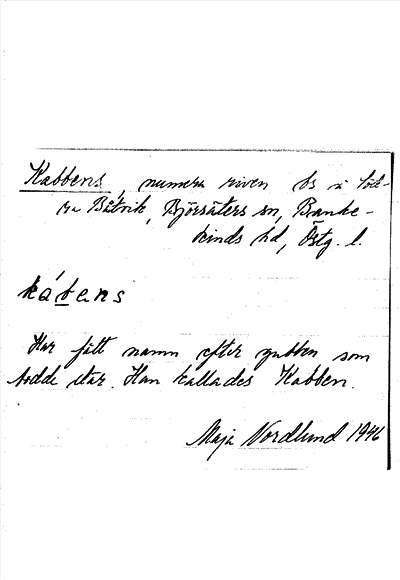 Kabbens, numera riven bs å Söd-
ra Båtvik, Björsäters sn, Banke-
kinds hd, Östg. l.
kábens
Har fått namn efter gubben som
bodde där. Han kallades Kabben.
Maja Nordlund 1946